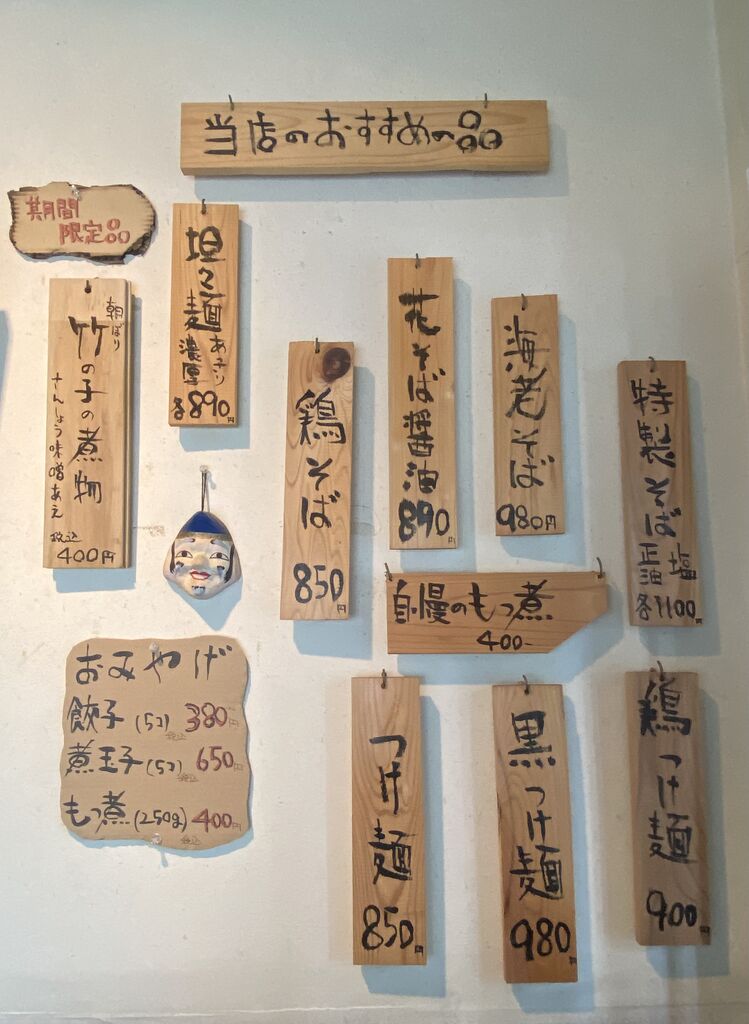 当店のおすすめの品
期間
限定品
朝ばり
竹の子の煮物
さんしょう味噌あえ
税込
400円
坦々麺
あっさり
濃厚
各890円
鶏そば
850円
花そば醤油
890円
海老そば
980円
特製そば
正油 塩
各1100円
自慢のもつ煮
400-
おみやげ
餃子(5コ) 380円
税込
煮玉子(5コ) 650円
税込
もつ煮(250g) 400円
税込
つけ麺
850円
黒つけ麺
980円
鶏つけ麺
900円